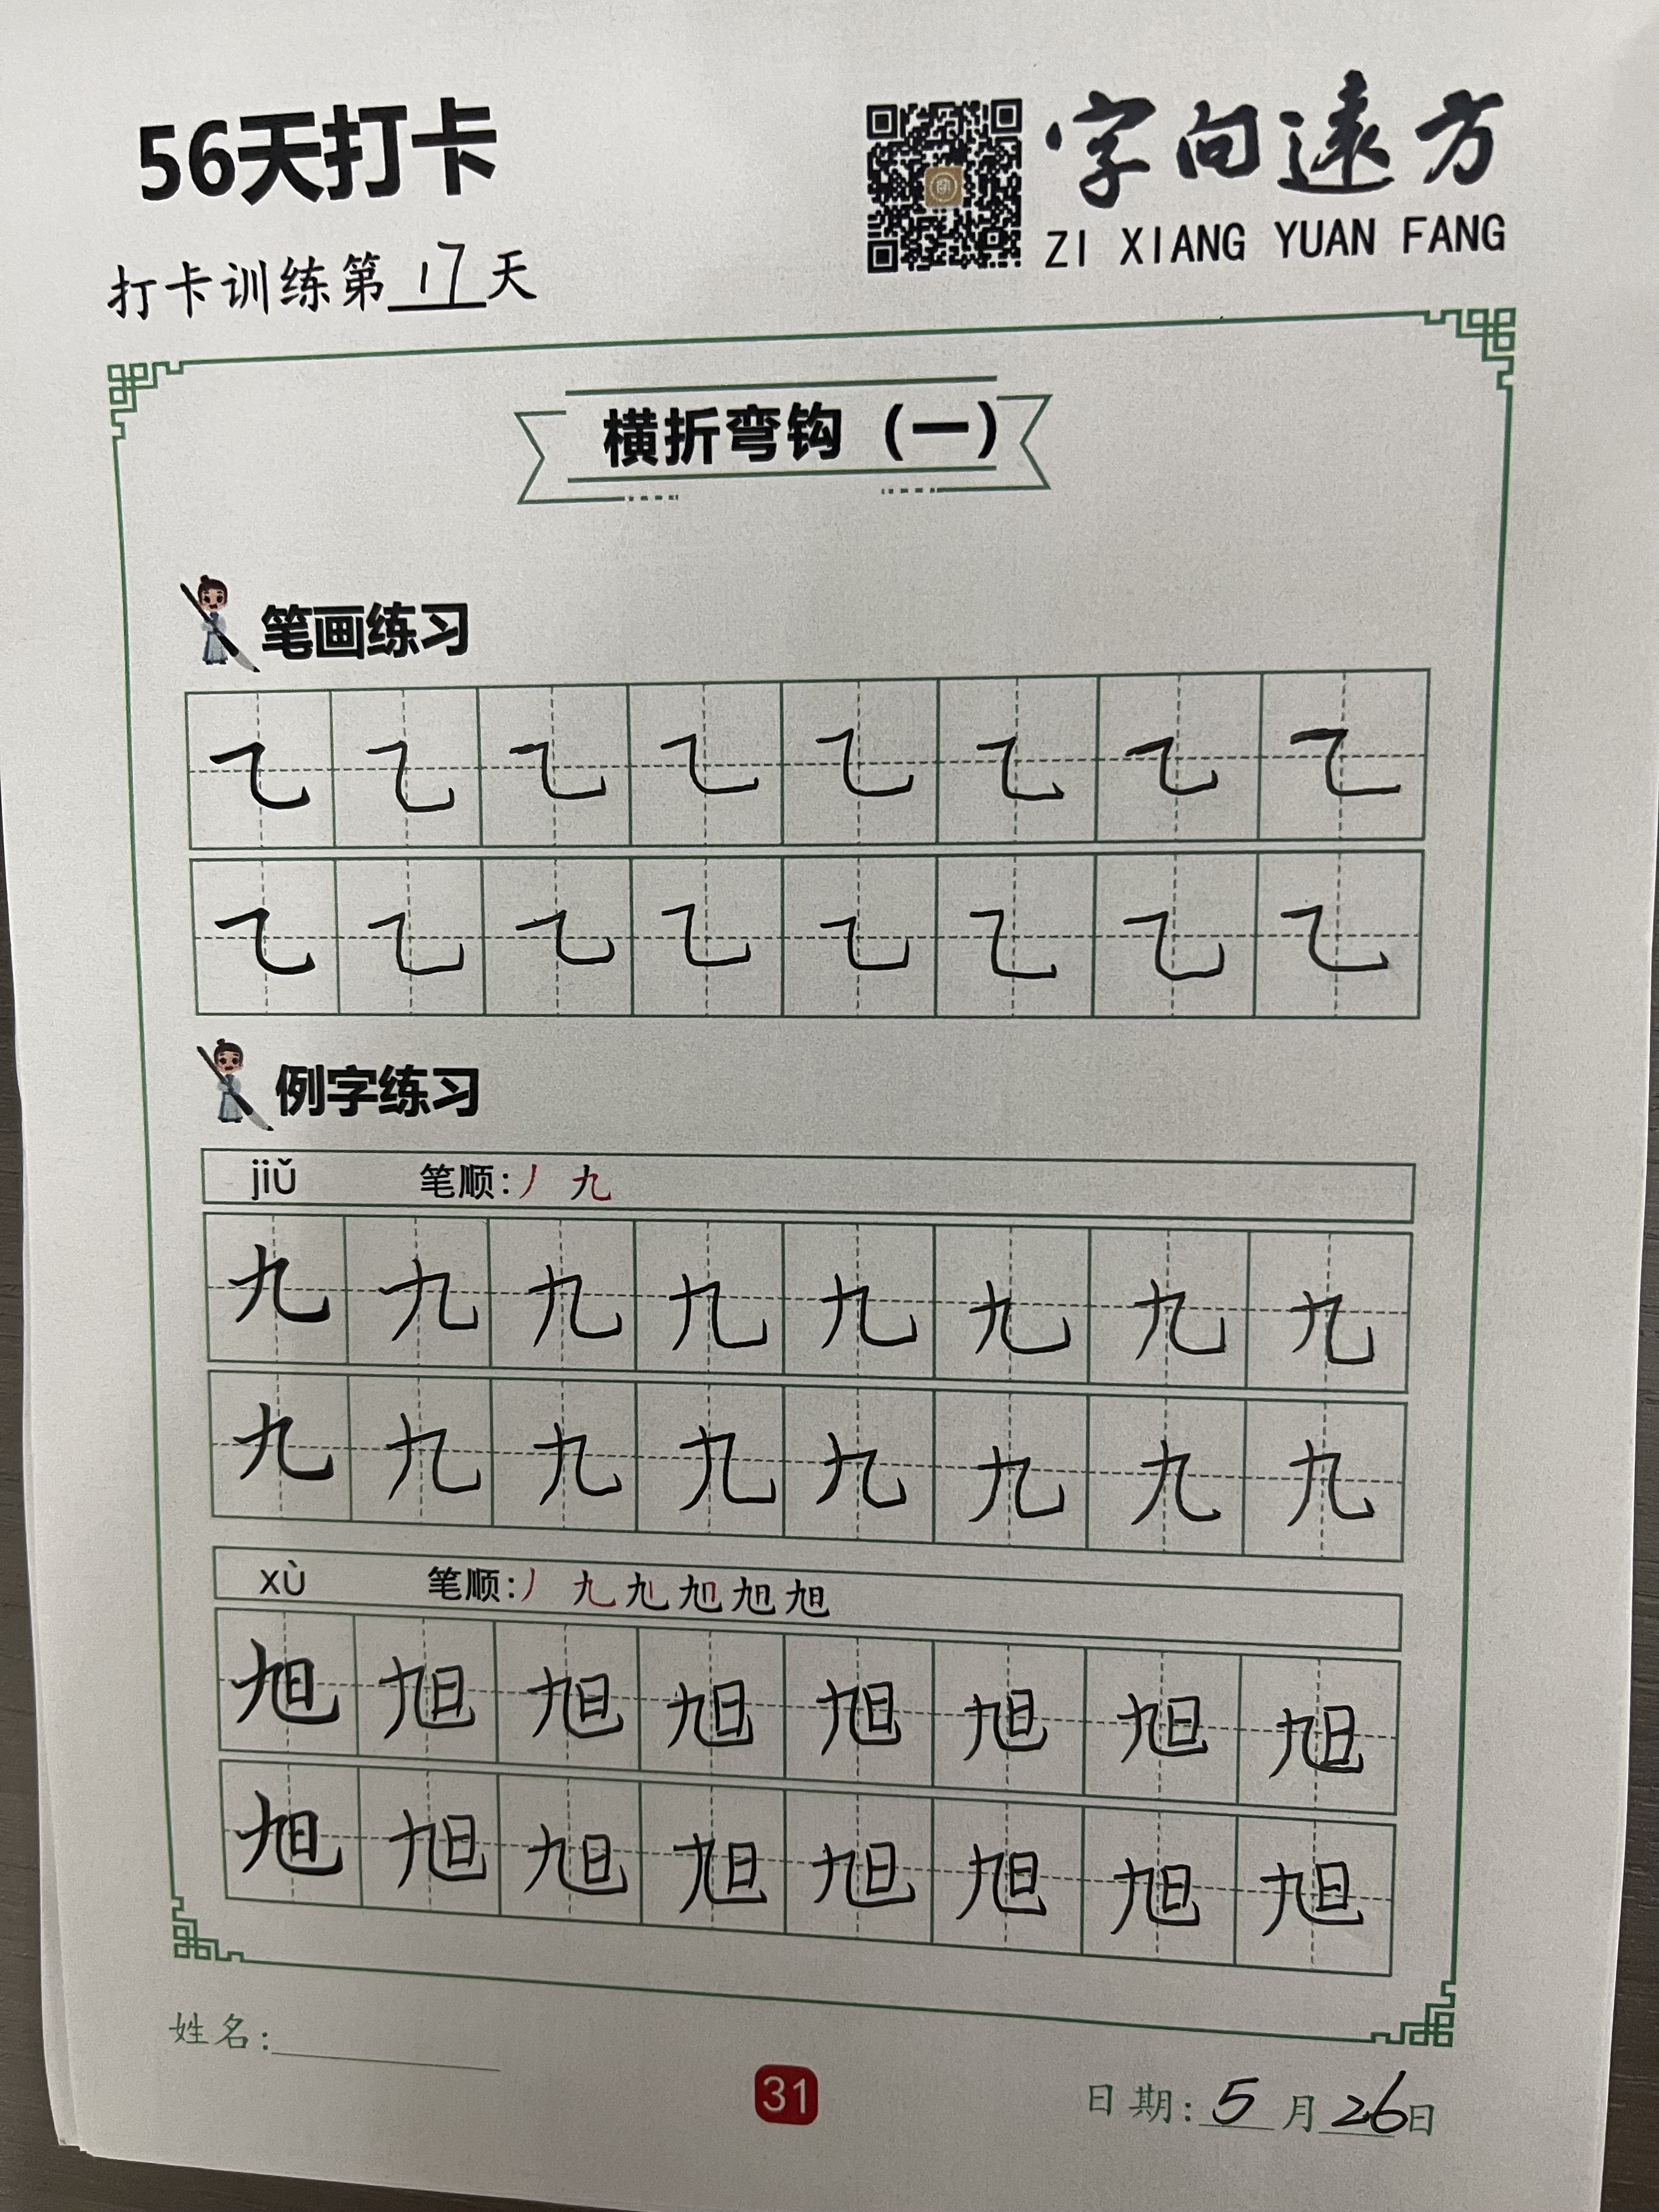 56天打卡
字向遠方
ZI XIANG YUAN FANG
打卡训练第17天
横折弯钩（一）
笔画练习
乙乙乙乙乙乙乙乙
乙乙乙乙乙乙乙乙
例字练习
jiǔ 笔顺:丿 九
九九九九九九九九
九九九九九九九九
xù 笔顺:丿 九 九 旭 旭 旭
旭旭旭旭旭旭旭旭
旭旭旭旭旭旭旭旭
姓名:
31
日期:5月26日